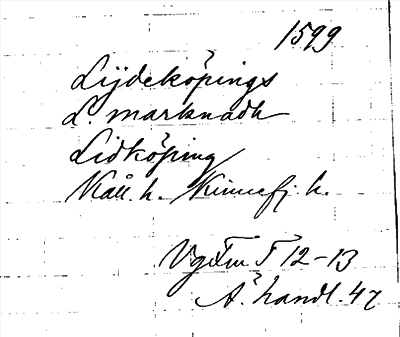 1599
Lijdeköpings
L. marknadh
Lidköping
Kåll. h. Kinnefj. h.
Vg Fm F 12-13
Ä. handl. 47